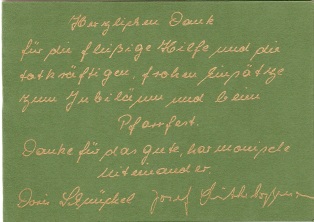 Herzlichen Dank
für die fleißige Hilfe und die
tatkräftigen, frohen Einsätze
zum Jubiläum und beim
Pfarrfest.
Danke für das gute, harmonische
Miteinander.
Doris Josef